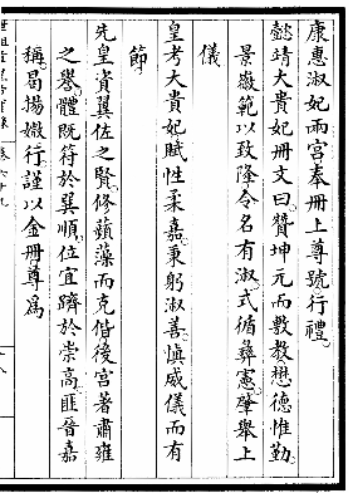 康惠淑妃兩宮奉冊上尊號行禮
懿靖大貴妃冊文曰贊坤元而敷教懋德惟勤
景徽範以致隆令名有淑式循彝憲肇舉上
儀
皇考大貴妃賦性柔嘉秉躬淑善慎威儀而有
節
先皇資翼佐之賢修蘋藻而克偕後宮著肅雍
之譽體既符於巽順位宜躋於崇高匪晉嘉
稱曷揚媺行謹以金冊尊爲